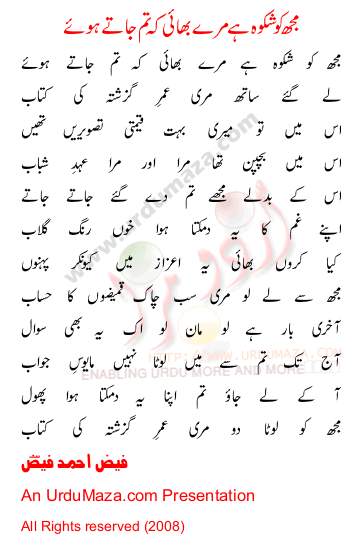 مجھ کو شکوہ ہے مرے بھائی کہ تم جاتے ہوئے
مجھ کو شکوہ ہے مرے بھائی کہ تم جاتے ہوئے
لے گئے ساتھ مری عمرِ گزشتہ کی کتاب
اس میں تو میری بہت قیمتی تصویریں تھیں
اس میں بچپن تھا مرا اور مرا عہدِ شباب
اس کے بدلے مجھے تم دے گئے جاتے جاتے
اپنے غم کا یہ دمکتا ہوا خوں رنگ گلاب
کیا کروں بھائی یہ اعزاز میں کیونکر پہنوں
مجھ سے لے لو مری سب چاک قمیضوں کا حساب
آخری بار ہے لو مان لو اک یہ بھی سوال
آج تک تم سے میں لوٹا نہیں مایوسِ جواب
آ کے لے جاؤ تم اپنا یہ دمکتا ہوا پھول
مجھ کو لوٹا دو مری عمرِ گزشتہ کی کتاب
فیض احمد فیضؔ
An UrduMaza.com Presentation
All Rights reserved (2008)
www.urdumaza.com
اردو مزا
HTTP://WWW.URDUMAZA.COM
ENABLING URDU MORE AND MORE